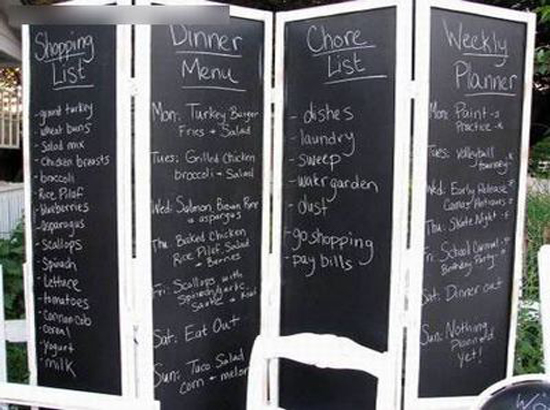 Shopping
List
- ground turkey
- wheat buns
- Salad mix
- Chicken breasts
- broccoli
- Rice Pilaf
- blueberries
- Asparagus
- Scallops
- Spinach
- Lettuce
- tomatoes
- Corn on cob
- cereal
- yogurt
- milk
Dinner
Menu
Mon: Turkey Burger
Fries + Salad
Tues: Grilled Chicken
broccoli + Salad
Wed: Salmon Brown Rice
+ asparagus
Thu: Baked Chicken
Rice Pilaf, Salad
+ Berries
Fri: Scallops with
Spinach, garlic,
Sauté +
Sat: Eat Out
Sun: Taco Salad
corn + melon
Chore
List
- dishes
- laundry
- sweep
- water garden
- dust
- go shopping
- pay bills
Weekly
Planner
Mon: Paint
Practice
Tues: Volleyball
Wed: Early Release
Thu: Skate Night
Fri: School Carnival
Birthday Party
Sat: Dinner out
Sun: Nothing
Planned
yet!